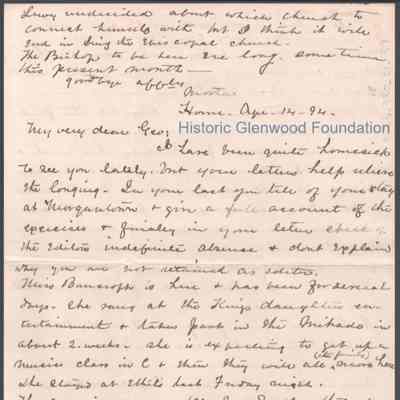 undecided about which church to
connect himself with but I think it will
end in being the Episcopal church.
The Bishop to be here ere long. sometime
this present month—
goodbye
Home. Apr. 14-94.
Historic Glenwood Foundation
My very dear Geo;
I have been quite homesick
to see you lately. but your letters help relieve
the longing. In your last you tell of your stay
at Morgantown & give a full account of the
exercises & finally in your letter
the Editors indefinite absence & dont explain
why you are not retained as editor.
Miss Bancroft is here & has been for several
days. She sang at the Kings daughters en-
tertainment & takes part in the Mikado in
about 2. weeks. she is expecting to get up a
music class in C & then they will all
She stayed at Ethels last Friday night.